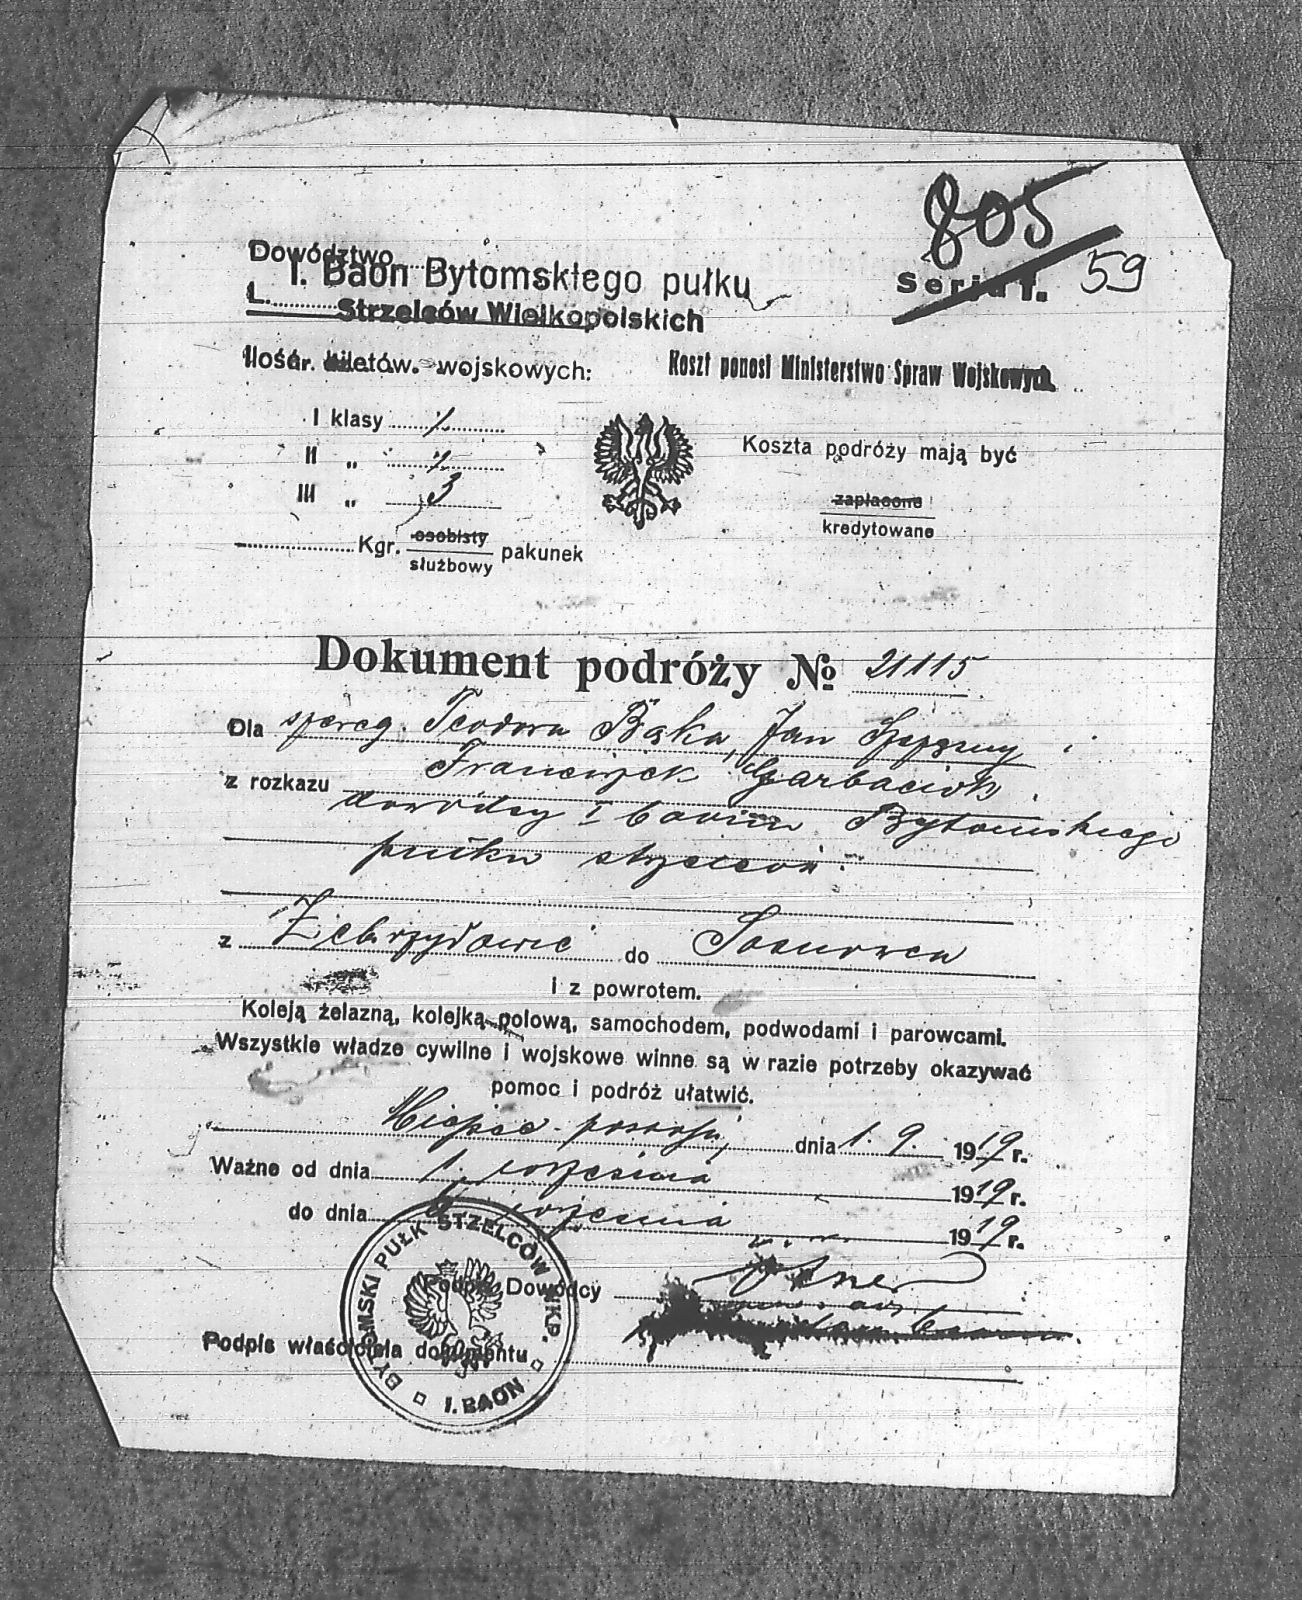 805
Serja I. 59
Dowództwo
I. Baon Bytomskiego pułku
L.
Strzelców Wielkopolskich
Ilość biletów wojskowych:
Koszt ponosi Ministerstwo Spraw Wojskowych.
I klasy %
II „ %
III „ 3
Koszta podróży mają być
zapłacone
kredytowane
Kgr. osobisty pakunek
służbowy
Dokument podróży № 21115
Dla szereg. Teodora Bąka, Jan i
z rozkazu Franciszek Garbaciok
dowódcy I baonu Bytomskiego
pułku strzelców.
z Zebrzydowic do Sosnowca
i z powrotem.
Koleją żelazną, kolejką polową, samochodem, podwodami i parowcami.
Wszystkie władze cywilne i wojskowe winne są w razie potrzeby okazywać
pomoc i podróż ułatwić.
Miejsce postoju, dnia 1. 9. 1919 r.
Ważne od dnia 1. września 1919 r.
do dnia września 1919 r.
Podpis Dowódcy
Podpis właściciela dokumentu
BYTOMSKI PUŁK STRZELCÓW WKP.
I. BAON